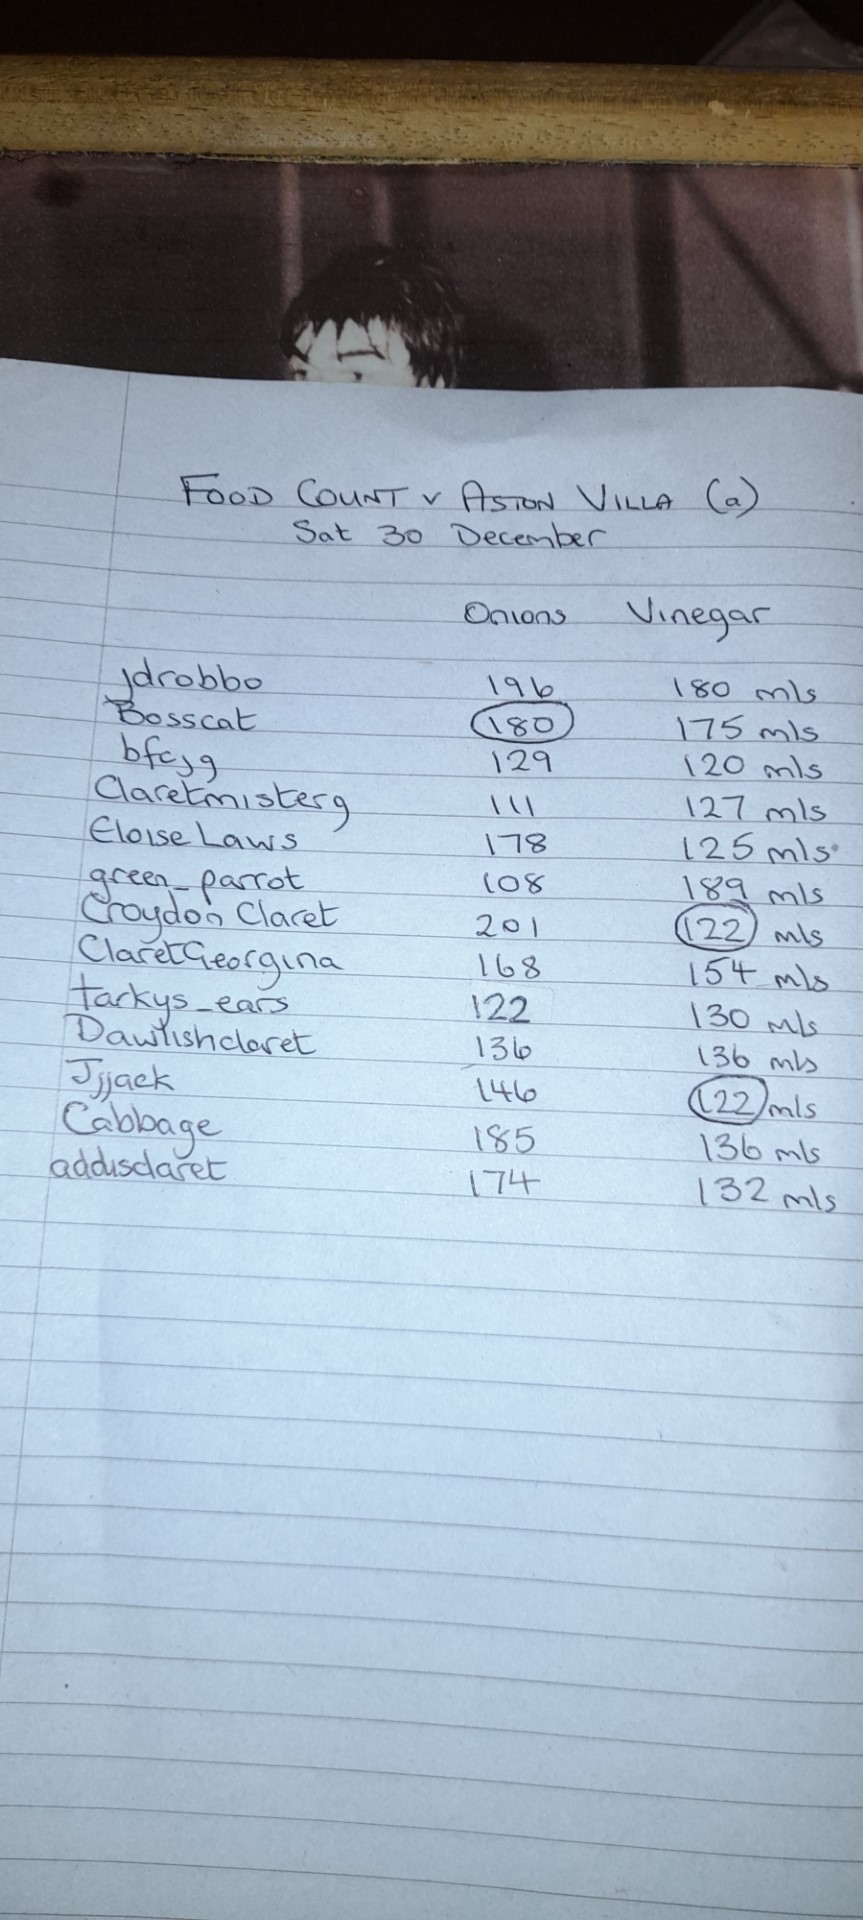 FOOD COUNT v ASTON VILLA (a)
Sat 30 December
Onions Vinegar
jdrobbo 196 180 mls
Bosscat 180 175 mls
bfcjg 129 120 mls
Claretmisterg 111 127 mls
Eloise Laws 178 125 mls
green_parrot 108 189 mls
Croydon Claret 201 122 mls
ClaretGeorgina 168 154 mls
tarkys_ears 122 130 mls
Dawlishclaret 136 136 mls
Jjjack 146 122 mls
Cabbage 185 136 mls
addisclaret 174 132 mls